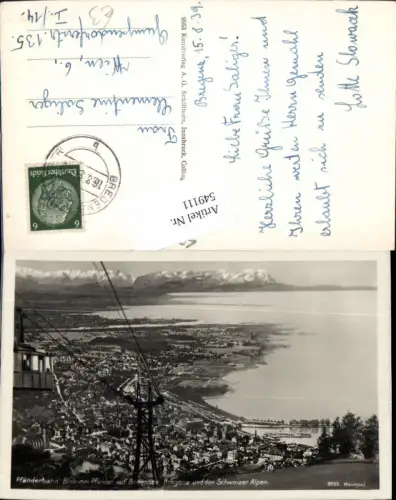 Bregenz, 15.8.39.
Liebe Frau Saliger!
Herzliche Grüße Ihnen und
Ihrem werten Herrn Gemahl
erlaubt sich zu senden
Lotte Slowack
Frau
Clementine Saliger
Wien, 6.,
Gumpendorferstr. 135.
I./14.
Kunstverlag A. G. Schöllhorn, Innsbruck,
Deutsches Reich
6
6
BREGENZ
Artikel Nr.
549111
Pfänderbahn: Blick vom Pfänder auf Bodensee, Bregenz und den Schweizer Alpen.